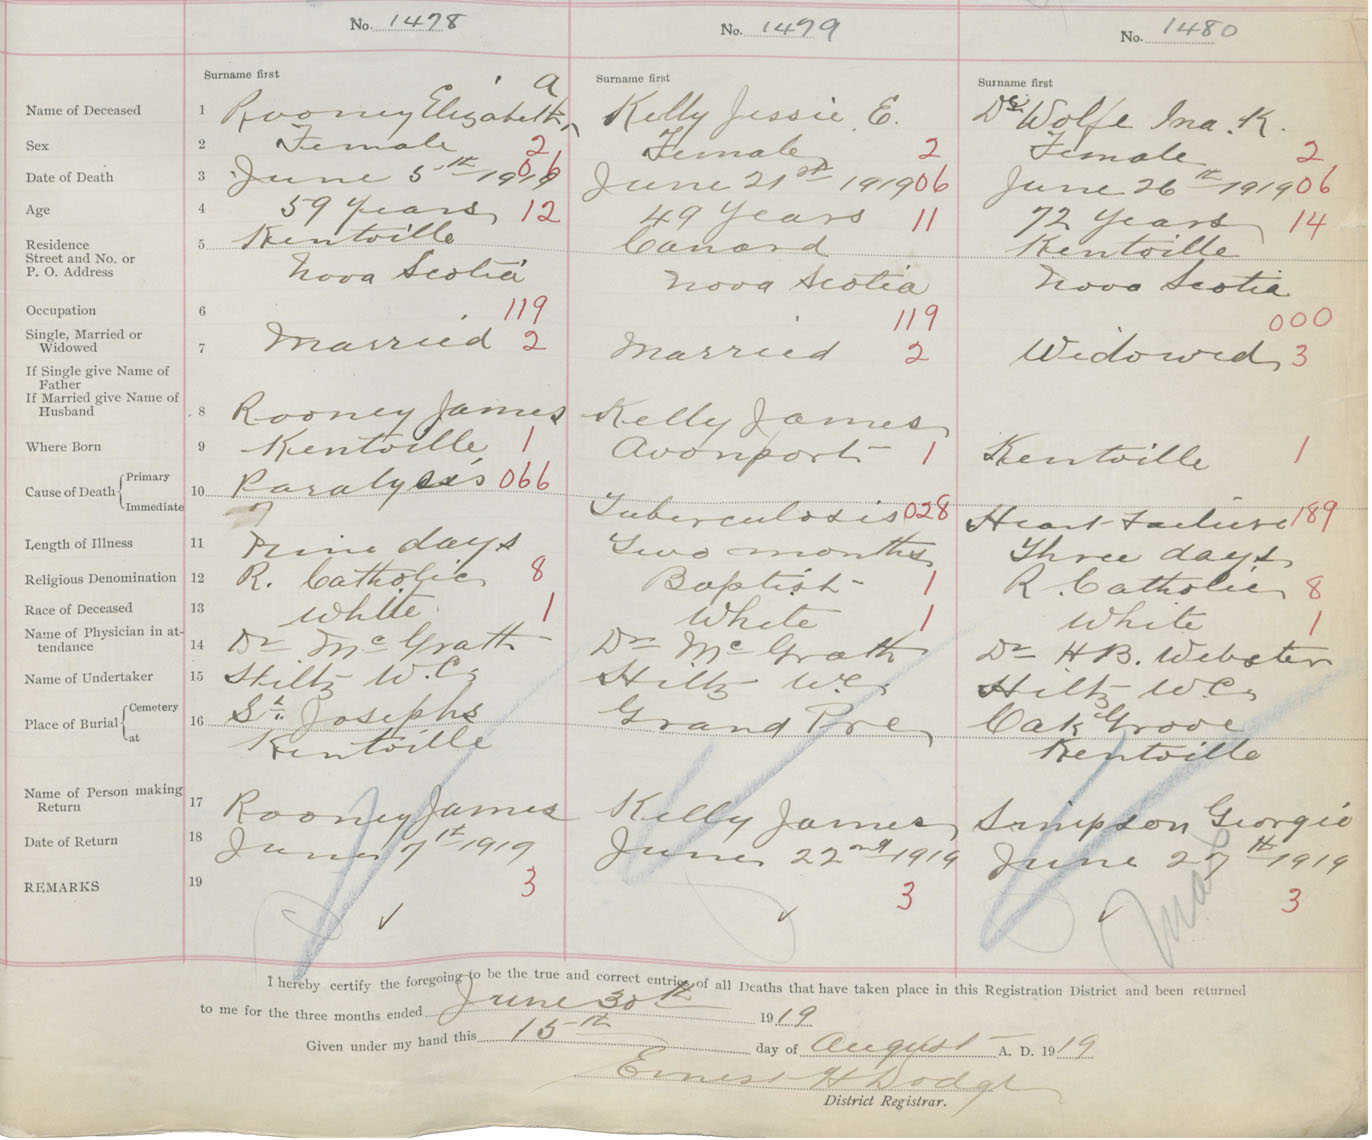 No. 1478 No. 1479 No. 1480
Surname first Surname first Surname first
A
Name of Deceased 1 Rooney Elizabeth Kelly Jessie E. De Wolfe Ina. K.
Sex 2 Female 2 Female 2 Female 2
Date of Death 3 June 5th 1919 06 June 21st 1919 06 June 26th 1919 06
Age 4 59 years 12 49 years 11 72 years 14
Residence 5 Kentville Canard Kentville
Street and No. or
P. O. Address Nova Scotia Nova Scotia Nova Scotia
Occupation 6 119 119 000
Single, Married or
Widowed 7 Married 2 Married 2 Widowed 3
If Single give Name of
Father
If Married give Name of
Husband 8 Rooney James Kelly James
Where Born 9 Kentville 1 Avonport 1 Kentville 1
Cause of Death Primary 10 Paralysis 066
Immediate Tuberculosis 028 Heart Failure 189
Length of Illness 11 Nine days Two months Three days
Religious Denomination 12 R. Catholic 8 Baptist 1 R. Catholic 8
Race of Deceased 13 White 1 White 1 White 1
Name of Physician in at-
tendance 14 Dr McGrath Dr McGrath Dr H.B. Webster
Name of Undertaker 15 Hiltz W.C. Hiltz W.C. Hiltz W.C.
Place of Burial Cemetery 16 St. Josephs Grand Pre Oak Grove
at Kentville Kentville
Name of Person making
Return 17 Rooney James Kelly James Simpson Georgie
Date of Return 18 June 7th 1919 June 22nd 1919 June 27th 1919
REMARKS 19 3 3 3
I hereby certify the foregoing to be the true and correct entries of all Deaths that have taken place in this Registration District and been returned
to me for the three months ended June 30th 1919
Given under my hand this 15th day of August A. D. 1919
Ernest H Dodge
District Registrar.